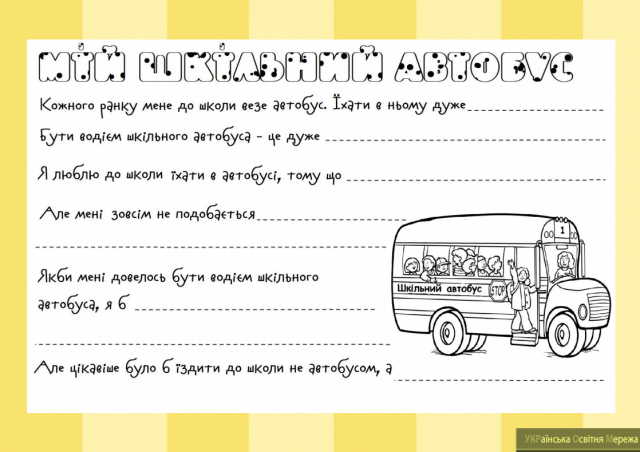 МІЙ ШКІЛЬНИЙ АВТОБУС
Кожного ранку мене до школи везе автобус. Їхати в ньому дуже
Бути водієм шкільного автобуса - це дуже
Я люблю до школи їхати в автобусі, тому що
Але мені зовсім не подобається
Якби мені довелось бути водієм шкільного
автобуса, я б
Але цікавіше було б їздити до школи не автобусом, а
1
Шкільний автобус
STOP
УКРаїнська Освітня Мережа